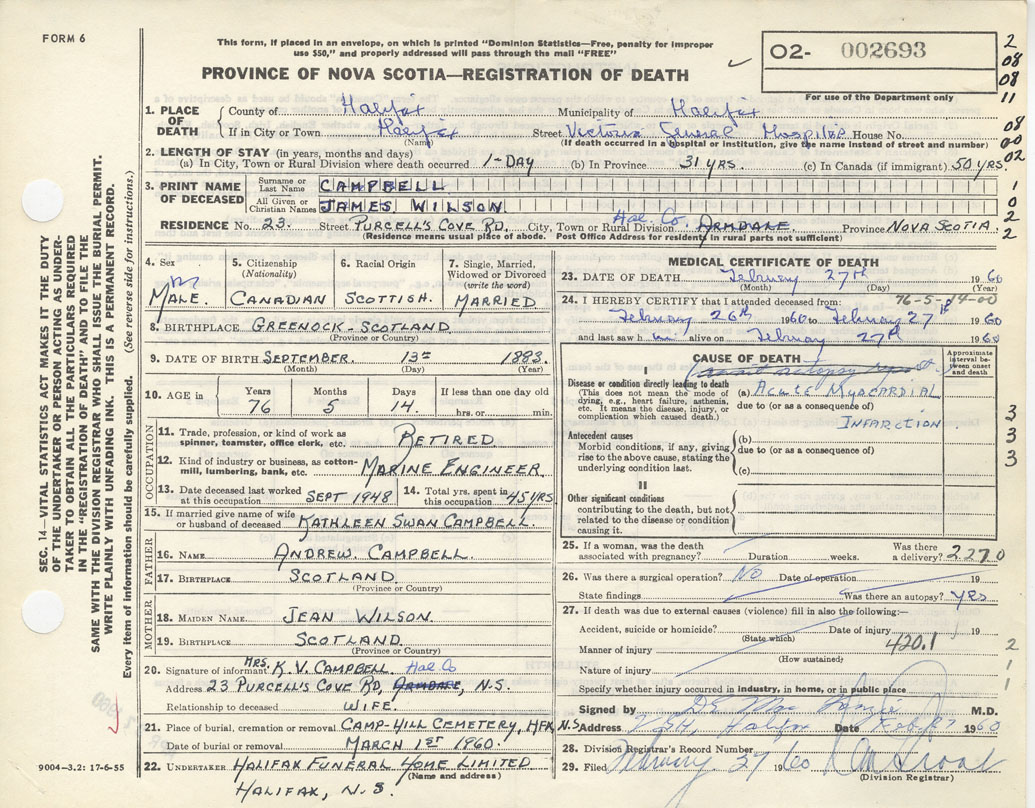 FORM 6
This form, if placed in an envelope, on which is printed "Dominion Statistics—Free, penalty for improper
use $50," and properly addressed will pass through the mail "FREE"
PROVINCE OF NOVA SCOTIA—REGISTRATION OF DEATH
02- 002693
For use of the Department only
2
08
08
11
08
00
02
1
0
2
2
SEC. 14—VITAL STATISTICS ACT MAKES IT THE DUTY
OF THE UNDERTAKER OR PERSON ACTING AS UNDER-
TAKER TO OBTAIN ALL THE PARTICULARS REQUIRED
IN THE "REGISTRATION OF DEATH" AND TO FILE THE
SAME WITH THE DIVISION REGISTRAR WHO SHALL ISSUE THE BURIAL PERMIT.
WRITE PLAINLY WITH UNFADING INK. THIS IS A PERMANENT RECORD.
Every item of information should be carefully supplied. (See reverse side for instructions.)
1. PLACE OF DEATH County of Halifax Municipality of Halifax
If in City or Town Halifax Street Victoria General Hospital House No.
(Name) (If death occurred in a hospital or institution, give the name instead of street and number)
2. LENGTH OF STAY (in years, months and days)
(a) In City, Town or Rural Division where death occurred 1-DAY (b) In Province 31 YRS. (c) In Canada (if immigrant) 50 YRS
3. PRINT NAME OF DECEASED
Surname or Last Name CAMPBELL
All Given or Christian Names JAMES WILSON
Hal. Co.
RESIDENCE No. 23. Street PURCELL'S COVE RD, City, Town or Rural Division ARMDALE Province NOVA SCOTIA
(Residence means usual place of abode. Post Office Address for residents in rural parts not sufficient)
4. Sex MALE.
5. Citizenship (Nationality) CANADIAN
6. Racial Origin SCOTTISH.
7. Single, Married, Widowed or Divorced (write the word) MARRIED
8. BIRTHPLACE GREENOCK-SCOTLAND
(Province or Country)
9. DATE OF BIRTH SEPTEMBER. 13th 1883.
(Month) (Day) (Year)
10. AGE in Years 76 Months 5 Days 14. If less than one day old hrs. or min.
OCCUPATION
11. Trade, profession or kind of work as spinner, teamster, office clerk, etc. RETIRED
12. Kind of industry or business, as cotton-mill, lumbering, bank, etc. MARINE ENGINEER
13. Date deceased last worked at this occupation SEPT 1948 14. Total yrs. spent in this occupation 45 YRS
15. If married give name of wife or husband of deceased KATHLEEN SWAN CAMPBELL.
FATHER
16. NAME ANDREW. CAMPBELL.
17. BIRTHPLACE SCOTLAND.
(Province or Country)
MOTHER
18. MAIDEN NAME JEAN WILSON.
19. BIRTHPLACE SCOTLAND.
(Province or Country)
20. Signature of informant MRS. K.V. CAMPBELL. Hal Co
Address 23 PURCELL'S COVE RD, ARMDALE, N.S.
Relationship to deceased WIFE.
21. Place of burial, cremation or removal CAMP-HILL CEMETERY, HFX, N.S
Date of burial or removal MARCH 1ST 1960.
22. UNDERTAKER HALIFAX FUNERAL HOME LIMITED
(Name and address)
HALIFAX, N.S.
9004-3.2: 17-6-55
MEDICAL CERTIFICATE OF DEATH
23. DATE OF DEATH February 27th 1960
(Month) (Day) (Year)
76-5-14-00
24. I HEREBY CERTIFY that I attended deceased from:
February 26th 1960 to February 27th 1960
and last saw h im alive on February 27th 1960
CAUSE OF DEATH
Approximate interval between onset and death
I
Disease or condition directly leading to death
(This does not mean the mode of dying, e.g., heart failure, asthenia, etc. It means the disease, injury, or complication which caused death.)
(a) ACUTE MYOCARDIAL
due to (or as a consequence of)
INFARCTION
Antecedent causes
Morbid conditions, if any, giving rise to the above cause, stating the underlying condition last.
(b)
due to (or as a consequence of)
(c)
3
3
3
II
Other significant conditions
contributing to the death, but not related to the disease or condition causing it.
25. If a woman, was the death associated with pregnancy? Duration weeks. Was there a delivery? 2270
26. Was there a surgical operation? NO Date of operation 19
State findings Was there an autopsy? YES
27. If death was due to external causes (violence) fill in also the following:—
Accident, suicide or homicide? Date of injury 19
(State which)
Manner of injury 420.1
(How sustained)
Nature of injury
2
1
1
Specify whether injury occurred in industry, in home, or in public place
Signed by M.D.
Address V.G.H. Halifax Date Feb 27 1960
28. Division Registrar's Record Number
29. Filed February 27 1960
(Division Registrar)